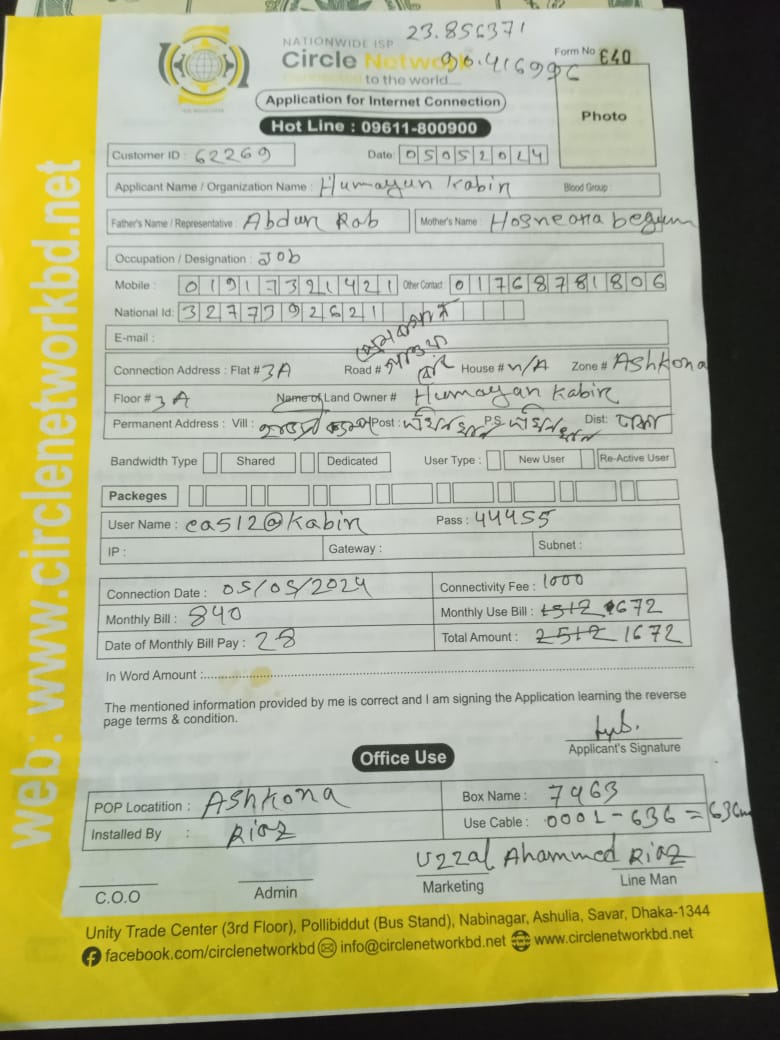 23.856371
NATIONWIDE ISP
Circle Network
90.416996
Form No 640
Connected to the world....
Application for Internet Connection
Hot Line : 09611-800900
Photo
Customer ID : 62269
Date: 05052024
Applicant Name / Organization Name : Humayun kabir
Blood Group :
Father's Name / Representative : Abdur Rab
Mother's Name : Hosneara begum
Occupation / Designation : Job
Mobile : 01917321421 Other Contact: 01768781806
National Id: 3277392621
E-mail :
Connection Address : Flat # 3A Road # House # n/A Zone # Ashkona
Floor # 3A Name of Land Owner # Humayan Kabir
Permanent Address : Vill : Post : P.S: Dist: ঢাকা
Bandwidth Type Shared Dedicated User Type : New User Re-Active User
Packeges
User Name : cas12@kabir Pass : 44455
IP : Gateway : Subnet :
Connection Date : 05/05/2024 Connectivity Fee : 1000
Monthly Bill : 840 Monthly Use Bill : 1512 1672
Date of Monthly Bill Pay : 28 Total Amount : 2512 1672
In Word Amount :
The mentioned information provided by me is correct and I am signing the Application learning the reverse
page terms & condition.
Applicant's Signature
Office Use
POP Locatition : Ashkona Box Name : 7463
Installed By : Riaz Use Cable : 0001-636 = 636m
Uzzal Ahammed Riaz
C.O.O Admin Marketing Line Man
Unity Trade Center (3rd Floor), Pollibiddut (Bus Stand), Nabinagar, Ashulia, Savar, Dhaka-1344
facebook.com/circlenetworkbd info@circlenetworkbd.net www.circlenetworkbd.net
web: www.circlenetworkbd.net